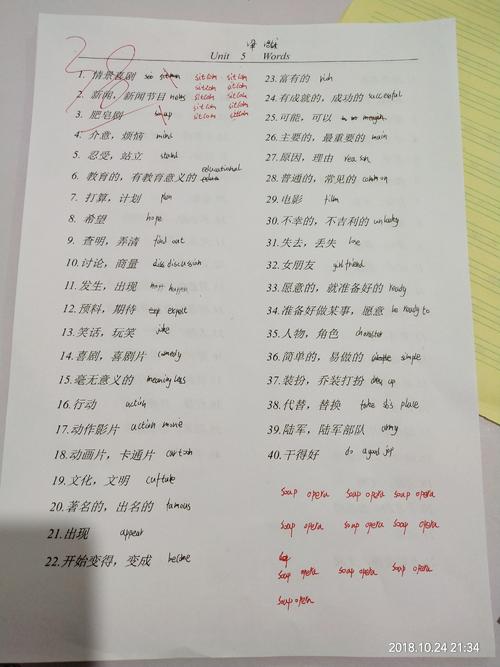 Unit 5 Words
1. 情景喜剧 sitcom sitcom
2. 新闻，新闻节目 news sitcom sitcom
3. 肥皂剧 soap sitcom sitcom
4. 介意，烦情 mind
5. 忍受，站立 stand
6. 教育的，有教育意义的 educational
7. 打算，计划 plan
8. 希望 hope
9. 查明，弄清 find out
10. 讨论，商量 discussion
11. 发生，出现 happen
12. 预料，期待 expect
13. 笑话，玩笑 joke
14. 喜剧，喜剧片 comedy
15. 毫无意义的 meaningless
16. 行动 action
17. 动作影片 action movie
18. 动画片，卡通片 cartoon
19. 文化，文明
20. 著名的，出名的 famous
21. 出现 appear
22. 开始变得，变成 become
23. 富有的 rich
24. 有成就的，成功的 successful
25. 可能，可以
26. 主要的，最重要的 main
27. 原因，理由 reason
28. 普通的，常见的 common
29. 电影 film
30. 不幸的，不吉利的 unlucky
31. 失去，丢失 lose
32. 女朋友 girlfriend
33. 愿意的，就准备好的 ready
34. 准备好做某事，愿意 be ready to
35. 人物，角色 character
36. 简单的，易做的 simple
37. 装扮，乔装打扮 dress up
38. 代替，替换 take sb's place
39. 陆军，陆军部队 army
40. 干得好 do a good job
soap opera soap opera soap opera
soap opera soap opera soap opera
soap opera soap opera soap opera
soap opera
2018.10.24 21:34